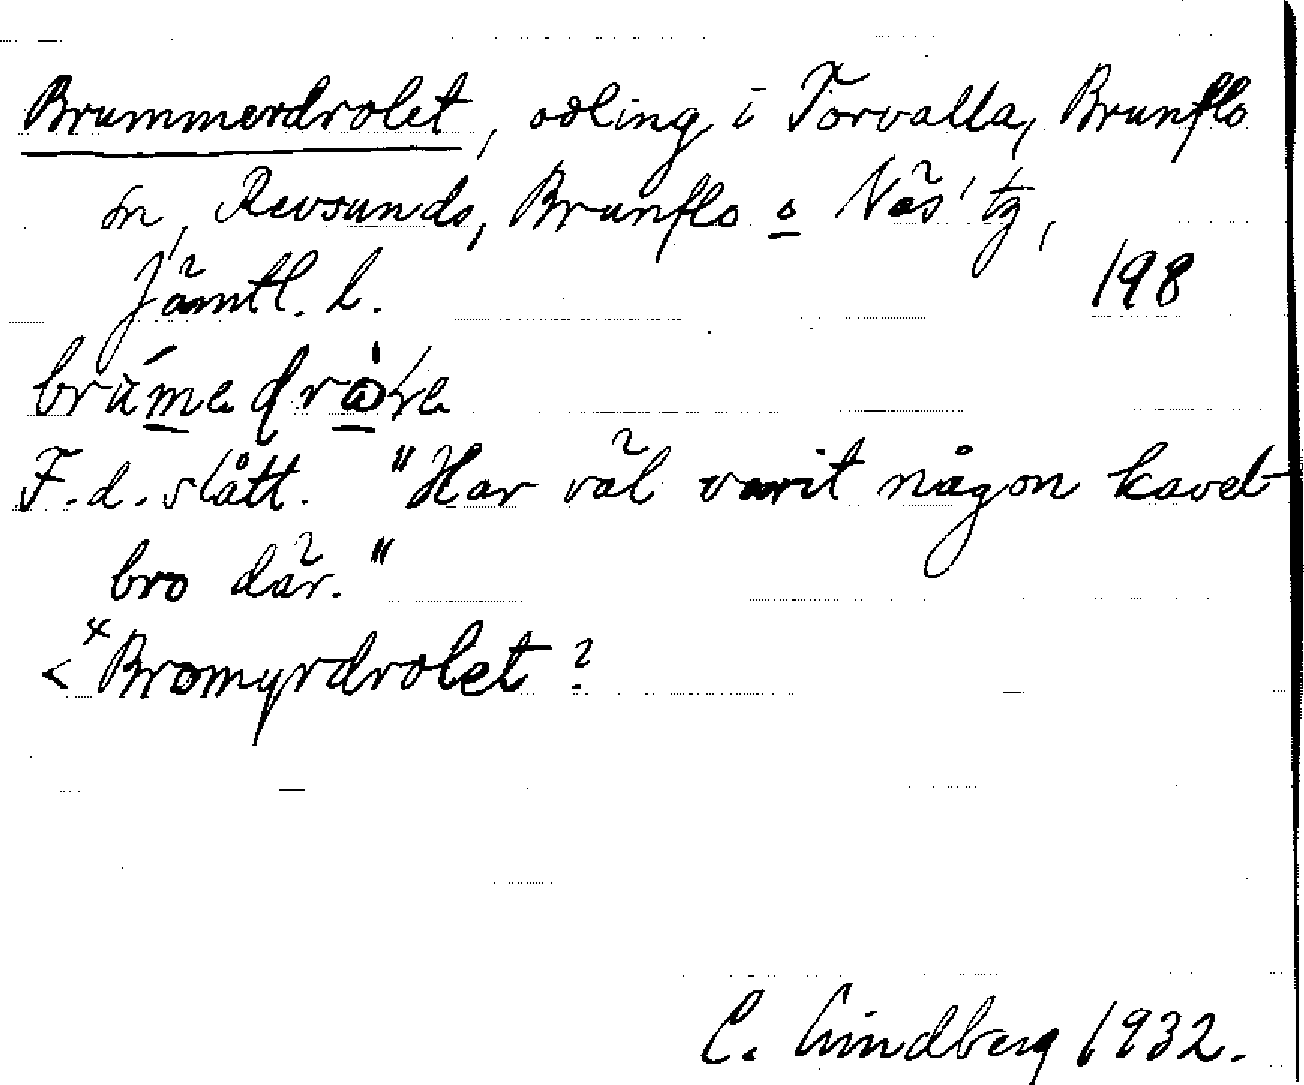 Brummerdrolet, odling i Torvalla, Brunflo
sn, Revsunds, Brunflo o Näs' tg,
Jämtl. l.
198
F.d. slått. "Har väl varit någon kavel-
bro där."
< *Bromyrdrolet?
C. Lindberg 1932.